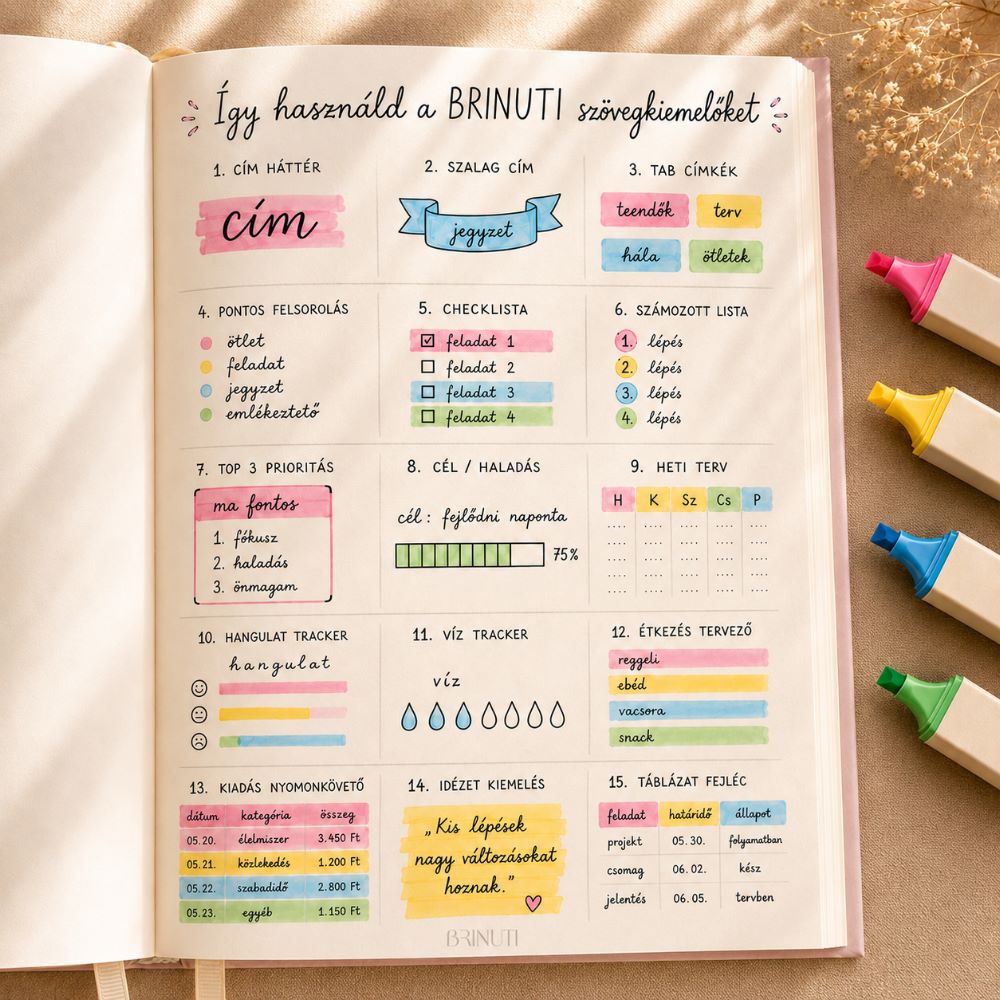 Így használd a BRINUTI szövegkiemelőket
1. CÍM HÁTTÉR
cím
2. SZALAG CÍM
jegyzet
3. TAB CÍMKÉK
teendők terv
hála ötletek
4. PONTOS FELSOROLÁS
ötlet
feladat
jegyzet
emlékeztető
5. CHECKLISTA
feladat 1
feladat 2
feladat 3
feladat 4
6. SZÁMOZOTT LISTA
1. lépés
2. lépés
3. lépés
4. lépés
7. TOP 3 PRIORITÁS
ma fontos
1. fókusz
2. haladás
3. önmagam
8. CÉL / HALADÁS
cél: fejlődni naponta
75%
9. HETI TERV
H K Sz Cs P
10. HANGULAT TRACKER
hangulat
11. VÍZ TRACKER
víz
12. ÉTKEZÉS TERVEZŐ
reggeli
ebéd
vacsora
snack
13. KIADÁS NYOMONKÖVETŐ
dátum kategória összeg
05.20. élelmiszer 3.450 Ft
05.21. közlekedés 1.200 Ft
05.22. szabadidő 2.800 Ft
05.23. egyéb 1.150 Ft
14. IDÉZET KIEMELÉS
„Kis lépések
nagy változásokat
hoznak.”
15. TÁBLÁZAT FEJLÉC
feladat határidő állapot
projekt 05.30. folyamatban
csomag 06.02. kész
jelentés 06.05. tervben
BRINUTI